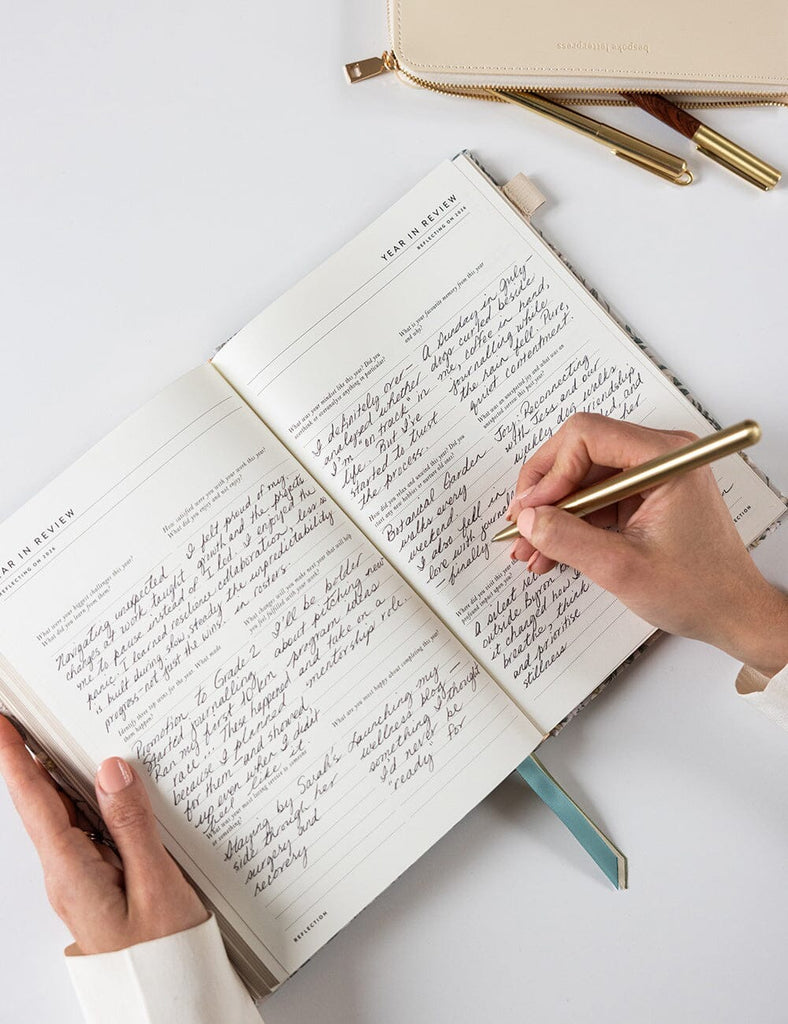 bespoke letterpress
YEAR IN REVIEW
REFLECTING ON 2025
What were your biggest challenges this year?
What did you learn from them?
Navigating unexpected
changes at work taught
me to pause instead of
panic. I learned resilience
is built during slow, steady
progress - not just the wins.
Identify three top wins for the year. What made
them happen?
Promotion to Grade 2
Started journalling
Ran my first 10km
race... These happened
because I planned
for them - and showed
up even when I didn't
feel like it.
What was your most loving service to someone
or something?
Staying by Sarah's
side through her
surgery and
recovery
How satisfied were you with your work this year?
What did you enjoy and not enjoy?
I felt proud of my
growth and the projects
I led. I enjoyed the
collaboration, less so
the unpredictability
in rosters.
What changes will you make next year that will help
you feel fulfilled with your work?
I'll be bolder
about pitching new
program ideas
and take on a
mentorship role.
What are you most happy about completing this year?
Launching my
wellness blog -
something I thought
I'd never be
"ready" for
REFLECTION
YEAR IN REVIEW
REFLECTING ON 2025
What was your mindset like this year? Did you
overthink or overanalyse anything in particular?
I definitely over-
analysed whether
I'm "on track" in
life. But I've
started to trust
the process.
How did you relax and unwind this year? Did you
start any new hobbies or nurture old ones?
Botanical Garden
walks every
weekend.
I also fell in
love with
finally
Where did you
profound impact upon you?
A silent
outside Byron
it changed how I
breathe, think
and prioritise
stillness
What is your favourite memory from this year
and why?
A Sunday in July -
dogs curled beside
me, coffee in hand,
journalling while
the rain fell. Pure,
quiet contentment.
What was an unexpected joy and what was an
unexpected sorrow this past year?
Joy: Reconnecting
with Jess and our
weekly dog walks.
friendship
and
her
REFLECTION